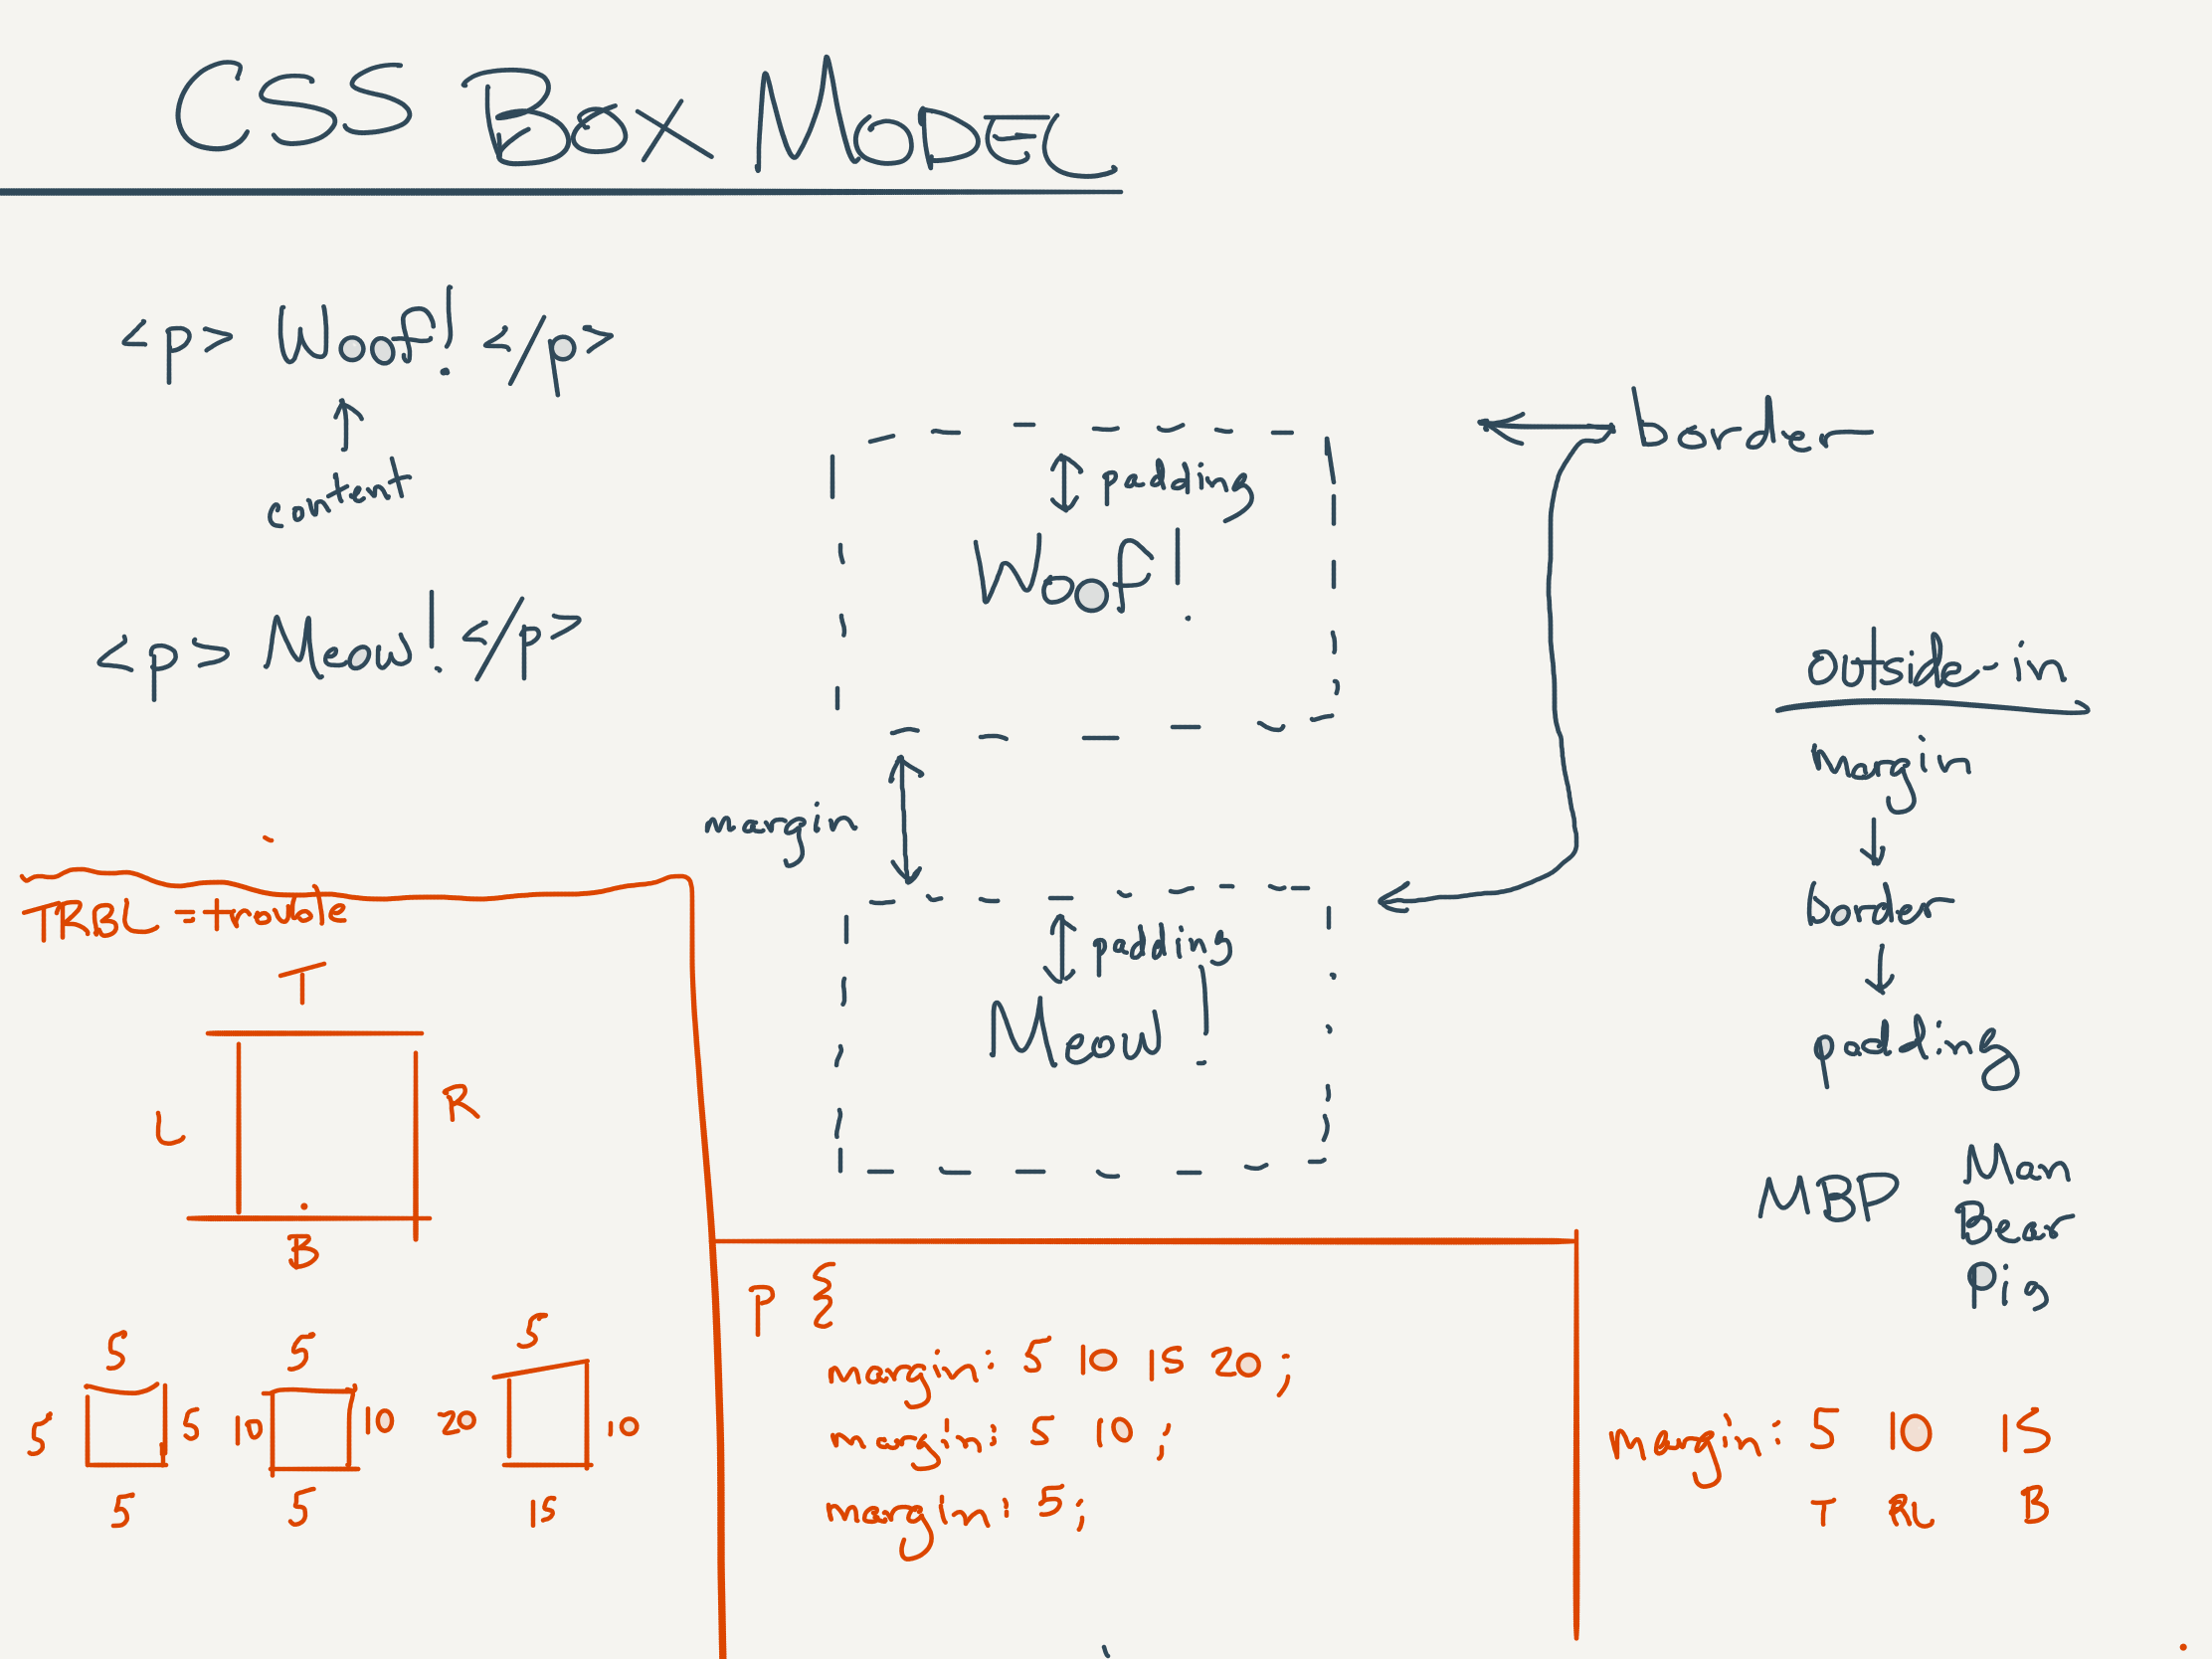 CSS Box Model
<p> Woof! </p>
content
<p> Meow! </p>
border
padding
Woof!
margin
padding
Meow!
outside-in
margin
border
padding
MBP
Man
Bear
Pig
TRBL = trouble
T
L
R
B
5
5
5
5
5
10
10
5
5
20
10
15
p {
margin: 5 10 15 20;
margin: 5 10;
margin: 5;
margin: 5 10 15
T RL B